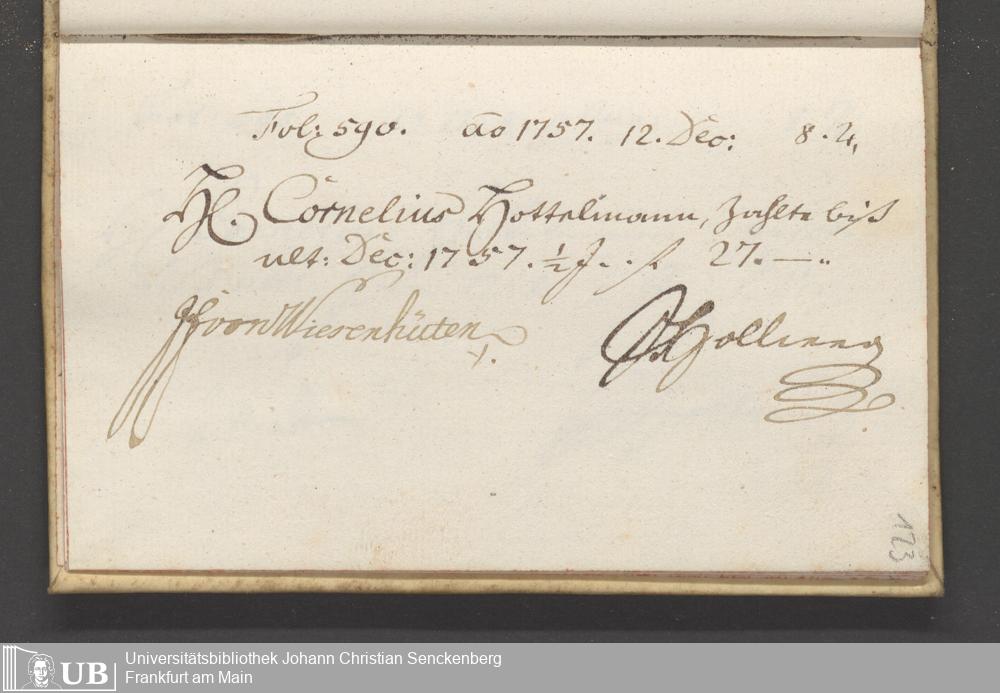 Fol: 590. Ao 1757. 12. Dec: 8. 4,
H. Cornelius Hottelmann, zahlte biß
ult: Dec: 1757. ½ J. . f 27. —..
JF von Wiesenhüten
123
UB
Universitätsbibliothek Johann Christian Senckenberg
Frankfurt am Main